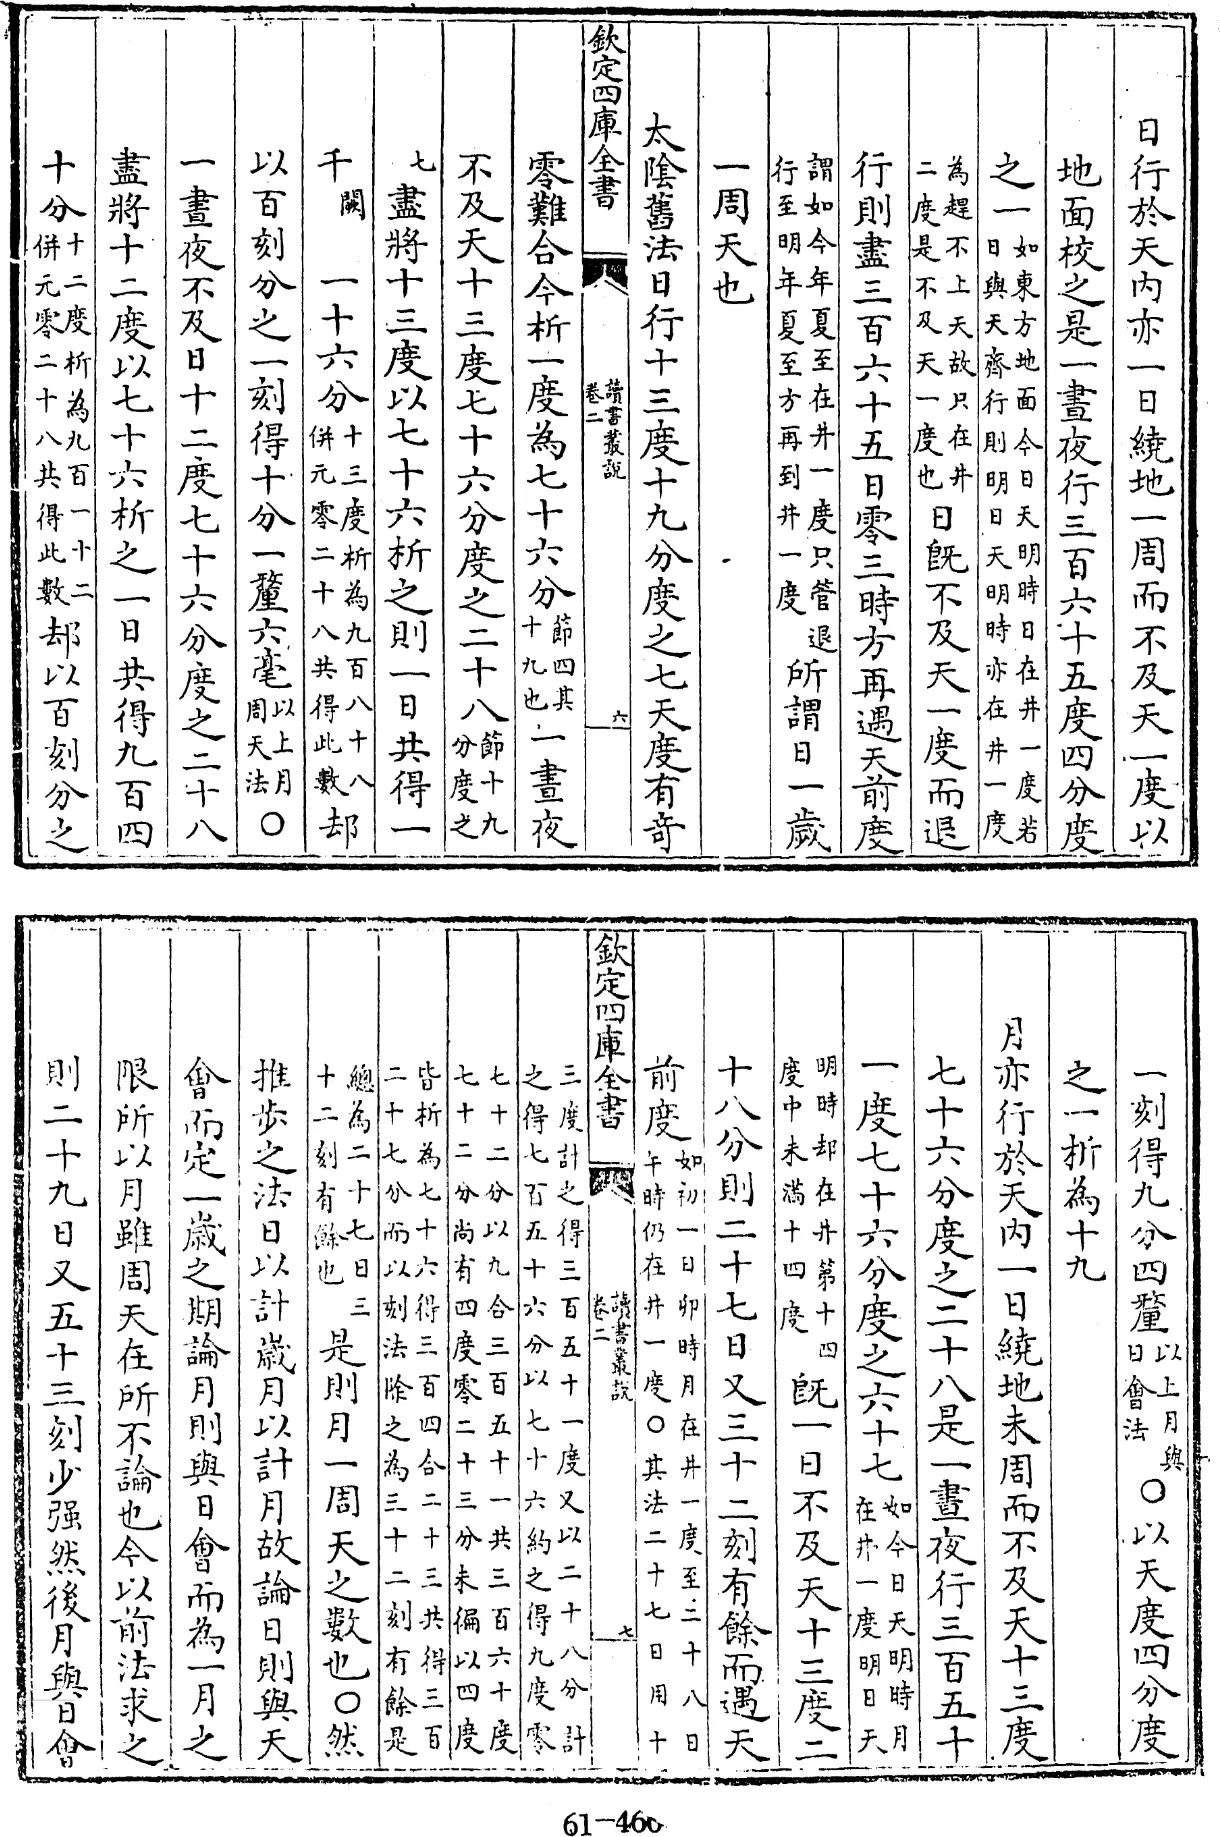 日行於天内亦一日繞地一周而不及天一度以
地面校之是一晝夜行三百六十五度四分度
之一如東方地面今日天明時日在井一度若日與天齊行則明日天明時亦在井一度
為趕不上天故只在井二度是不及天一度也日旣不及天一度而退
行則盡三百六十五日零三時方再遇天前度
謂如今年夏至在井一度只管退行至明年夏至方再到井一度所謂日一歲
一周天也
太陰舊法日行十三度十九分度之七天度有竒
欽定四庫全書
讀書叢說
卷二
六
零難合今析一度為七十六分節四其十九也一晝夜
不及天十三度七十六分度之二十八節十九分度之
七盡將十三度以七十六析之則一日共得一
千闕一十六分十三度析為九百八十八併元零二十八共得此數却
以百刻分之一刻得十分一釐六毫以上月周天法○
一晝夜不及日十二度七十六分度之二十八
盡將十二度以七十六析之一日共得九百四
十分十二度析為九百一十二併元零二十八共得此數却以百刻分之
一刻得九分四釐以上月與日會法○以天度四分度
之一析為十九
月亦行於天内一日繞地未周而不及天十三度
七十六分度之二十八是一晝夜行三百五十
一度七十六分度之六十七如今日天明時月在井一度明日天
明時却在井第十四度中未滿十四度旣一日不及天十三度二
十八分則二十七日又三十二刻有餘而遇天
前度如初一日卯時月在井一度至二十八日午時仍在井一度○其法二十七日用十
欽定四庫全書
讀書叢說
卷二
七
三度計之得三百五十一度又以二十八分計之得七百五十六分以七十六約之得九度零
七十二分以九合三百五十一共三百六十度七十二分尚有四度零二十三分未徧以四度
皆析為七十六得三百四合二十三共得三百二十七分而以刻法除之為三十二刻有餘是
總為二十七日三十二刻有餘也是則月一周天之數也○然
推步之法日以計歲月以計月故論日則與天
會而定一歲之期論月則與日會而為一月之
限所以月雖周天在所不論也今以前法求之
則二十九日又五十三刻少强然後月與日會
61-460